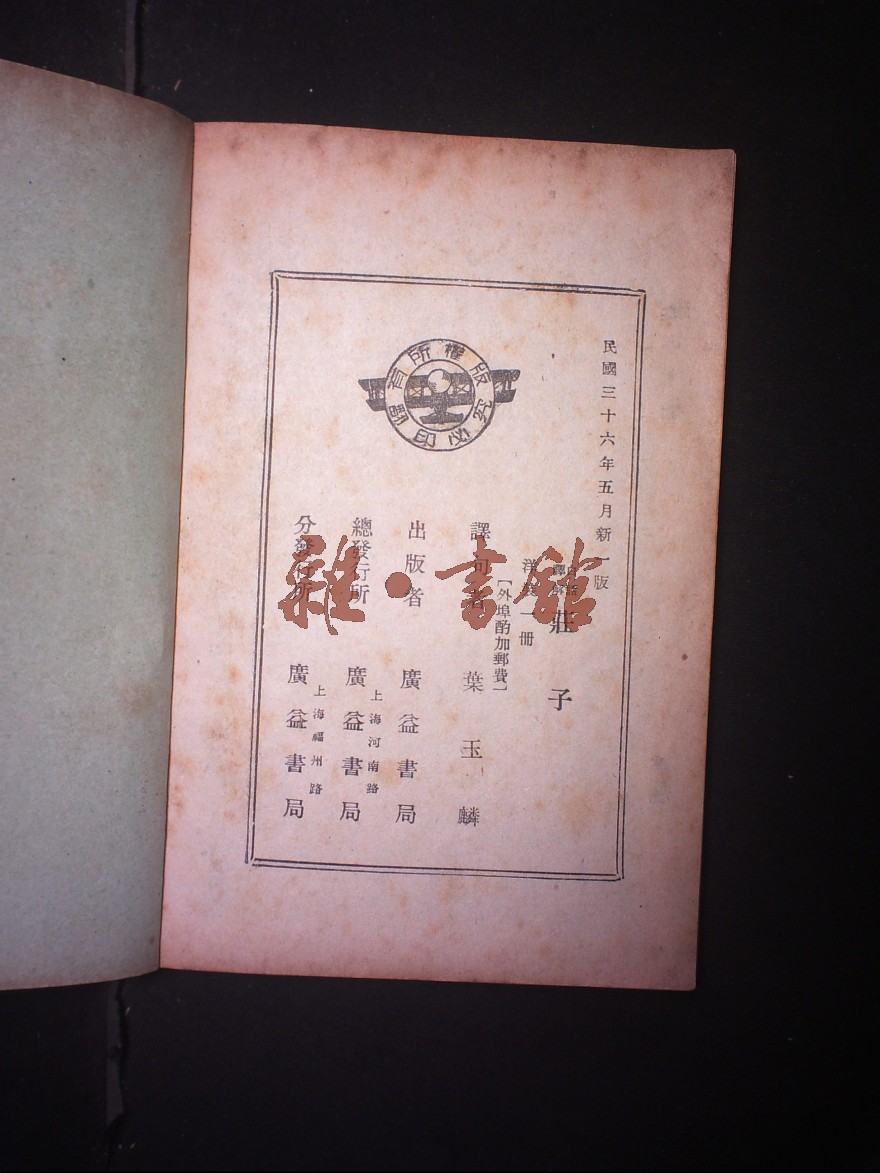 民國三十六年五月新一版
白話譯解 莊子
洋裝一冊
[外埠酌加郵費]
譯句者 葉玉麟
出版者 廣益書局
總發行所 上海河南路 廣益書局
分發行所 上海福州路 廣益書局
版權所有翻印必究
雜·書館